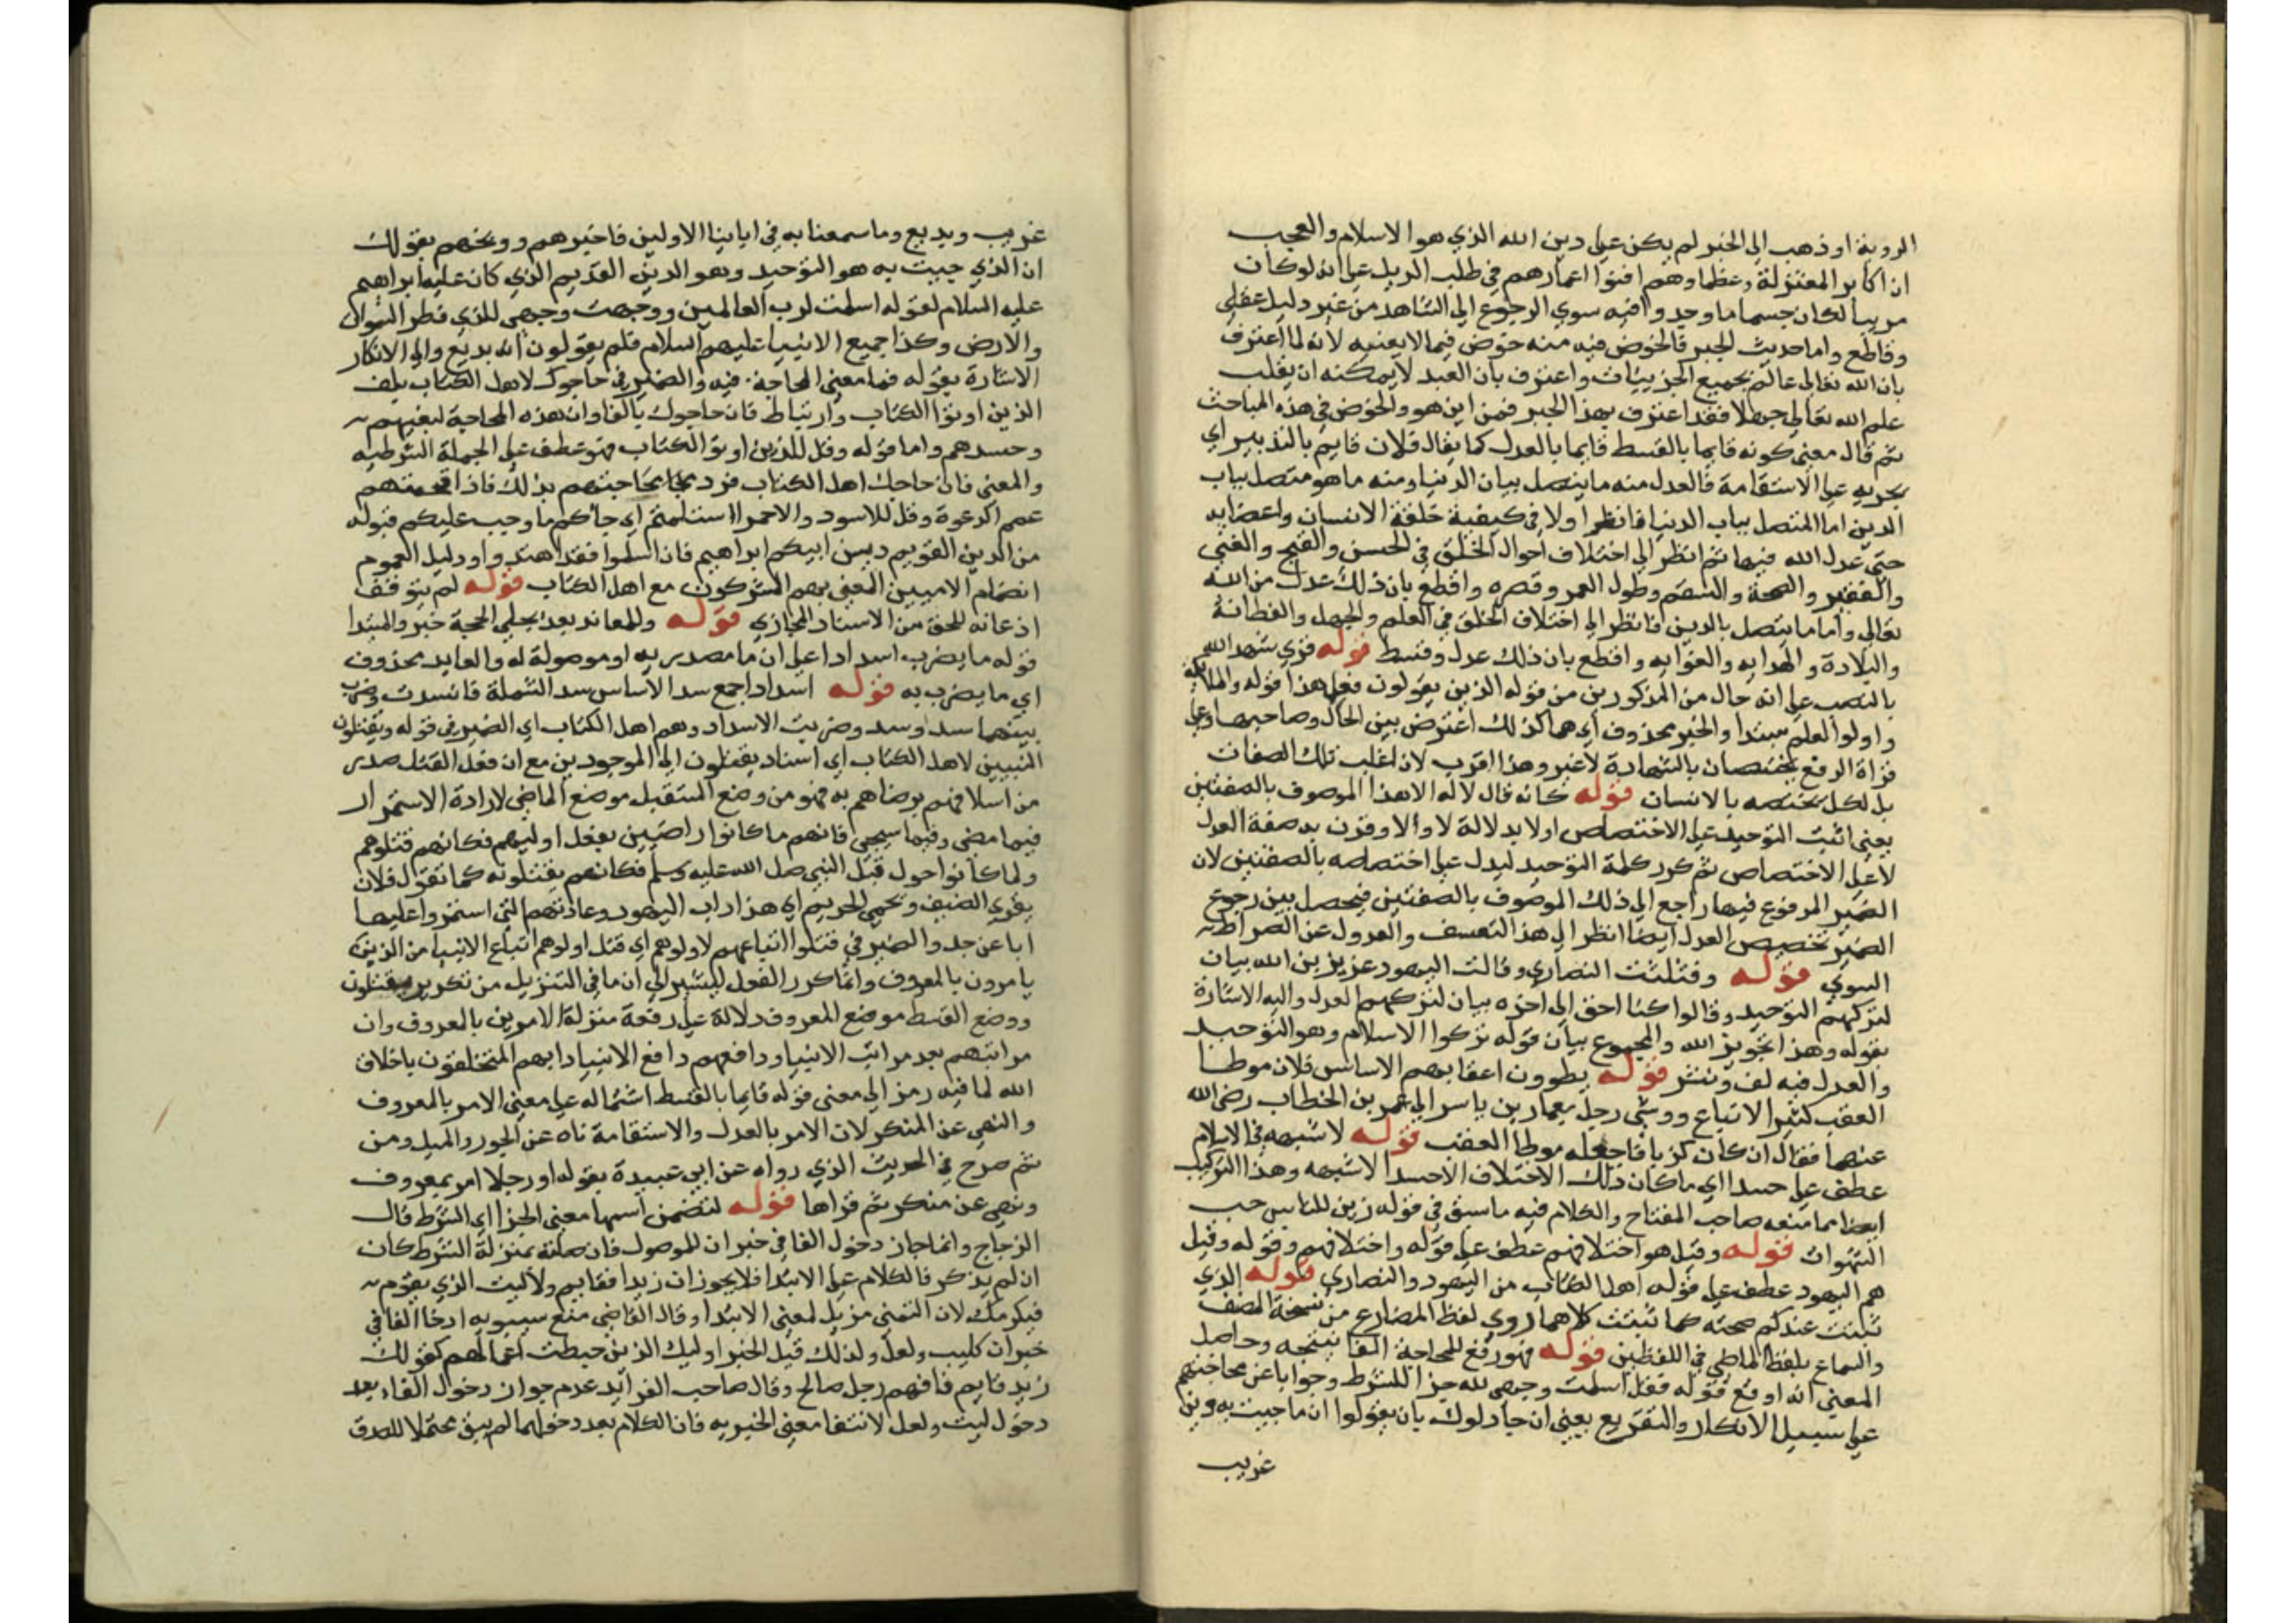 الروية او ذهب الى الجبر لم يكن على دين الله الذي هو الاسلام والعجب
ان اكابر المعتزلة وعظماوهم افنوا اعمارهم في طلب الدليل على انه لو كان
مرييا لكان جسما ما وجدوا فيه سوي الرجوع الى الشاهد من غير دليل عقلي
وقاطع واما حديث الجبر فالخوض فيه منه خوض فيما لا يعنيه لانه لما اعترف
بان الله تعالى عالم بجميع الجزييات واعترف بان العبد لا يمكنه ان يقلب
علم الله تعالى جهلا فقد اعترف بهذا الجبر فمن اين هو والخوض في هذه المباحث
ثم قال معنى كونه قايما بالقسط قايما بالعدل كما يقال فلان قايم بالتدبير اي
يجريه على الاستقامة فالعدل منه ما يتصل ببيان الدنيا ومنه ما هو متصل بباب
الدين اما المتصل بباب الدنيا فانظر اولا في كيفية خلقة الانسان واعضايه
حتى عدل الله فيها ثم انظر الى اختلاف احوال الخلق في الحسن والقبح والغني
والفقير والصحة والسقم وطول العمر وقصره واقطع بان ذلك عدل من الله
تعالى واما ما يتصل بالدين فانظر الى اختلاف الخلق في العلم والجهل والفطانة
والبلادة والهدايه والغوايه واقطع بان ذلك عدل وقسط قوله قري شهد الله
بالنصب على انه حال من المذكورين من قوله الذين يقولون فعلى هذا قوله والملايكة
واولوا العلم مبتدا والخبر محذوف اي هما كذلك اعترض بين الحال وصاحبها وعلى
قراة الرفع يختصان بالشهادة لا غير وهذا اقرب لان اغلب تلك الصفات
بل لكل مختصه بالانسان قوله كانه قال لا اله الا هذا الموصوف بالصفتين
يعني اثبت التوحيد على الاختصاص اولا بدلالة لا والا وقرن به صفة العدل
لا على الاختصاص ثم كرر كلمة التوحيد ليدل على اختصاصه بالصفتين لان
الضمير المرفوع فيها راجع الى ذلك الموصوف بالصفتين فيحصل بين رجوع
الضمير تخصيص العدل ايضا انظر الى هذا التعسف والعدول عن الصراط
السوي قوله وثلثت النصاري وقالت اليهود عزيز بن الله بيان
لتركهم التوحيد وقالوا كنا احق الى اخره بيان لتركهم العدل واليه الاشارة
بقوله وهذا تجويز الله والمجموع بيان قوله تركوا الاسلام وهو التوحيد
والعدل فيه لف ونشر قوله يطوون اعقابهم الاساس فلان موطا
العقب كثير الاتباع ووشى رجل بعمار بن ياسر الى عمر بن الخطاب رضي الله
عنهما فقال ان كان كذبا فاجعله موطا العقب قوله لا شبهه في الاسلام
عطف على حسدا اي ما كان ذلك الاختلاف الا حسدا لا شبهه وهذا التركيب
ايضا مما منعه صاحب المفتاح والكلام فيه ما سبق في قوله زين للناس حب
الشهوات قوله وقيل هو اختلافهم عطف على قوله واختلافهم وقوله وقيل
هم اليهود عطف على قوله اهل الكتاب من اليهود والنصاري قوله الذي
ثبتت عندكم صحته كما تثبت كلاهما روي لفظ المضارع من نسخة المصنف
والسماع بلفظ الماضي في اللفظين قوله فهو رفع للمحاجة الفا نتيجه وحاصل
المعني انه اوقع قوله فقل اسلمت وجهي لله جزا للشرط وجوابا عن محاجتهم
على سبيل الانكار والتقريع يعني ان جادلوك بان يقولوا ان ما جيت به دين
غريب
غريب وبديع وما سمعنا به في اباينا الاولين فاخبرهم ووبخهم بقولك
ان الذي جيت به هو التوحيد وهو الدين القديم الذي كان عليه ابراهيم
عليه السلام لقوله اسلمت لرب العالمين ووجهت وجهي للذي فطر السموات
والارض وكذا جميع الانبيا عليهم السلام فلم يقولون انه بديع والى الانكار
الاشارة بقوله فما معنى المحاجة فيه والضمير في حاجوك لاهل الكتاب يلف
الذين اوتوا الكتاب وارتباط فان حاجوك بالفا وان هذه المحاجة لبغيهم
وحسدهم واما قوله وقل للذين اوتوا الكتاب فهو عطف على الجملة الشرطيه
والمعنى فان حاجك اهل الكتاب فرد محاجتهم بذلك فاذا افحمتهم
عمم الدعوة وقل للاسود والاحمر ااسلمتم اي جاكم ما وجب عليكم قبوله
من الدين القويم دين ابيكم ابراهيم فان اسلموا فقد اهتدوا ودليل العموم
انضمام الاميين المعني بهم المشركون مع اهل الكتاب قوله لم يتوقف
اذعانه للحق من الاسناد المجازي قوله وللمعاند بعد تجلي الحجة خبر والمبتدا
قوله ما يضرب اسدادا على ان ما مصدريه او موصولة له والعايد محذوف
اي ما يضرب به قوله اسدادا جمع سد الاساس سد الثلمة فانسدت وضرب
بينهما سد وسد وضربت الاسداد وهم اهل الكتاب اي الضمير في قوله ويقتلون
النبيين لاهل الكتاب اي اسناد يقتلون الى الموجودين مع ان فعل القتل صدر
من اسلافهم برضاهم به فهو من وضع المستقبل موضع الماضي لارادة الاستمرار
فيما مضى وفيما سيجي فانهم ما كانوا راضيين بفعل اوليهم فكانهم قتلوهم
ولما كانوا حول قتل النبي صلى الله عليه وسلم فكانهم يقتلونه كما تقول فلان
يقري الضيف ويحمي الحريم اي هذا داب اليهود وعادتهم التي استمروا عليها
ابا عن جد والضمير في قتلوا اتباعهم لاولوهم اي قتل اولوهم اتباع الانبيا من الذين
يامرون بالمعروف وانما كرر الفعل ليشير الى ان ما في التنزيل من تكرير يقتلون
ووضع القسط موضع المعروف دلالة على رفعة منزلة الامرين بالمعروف وان
مراتبهم بعد مراتب الانبيا ودافعهم دافع الانبيا دابهم المتخلقون باخلاق
الله لما فيه رمز الى معنى قوله قايما بالقسط اشتماله على معنى الامر بالمعروف
والنهي عن المنكر لان الامر بالعدل والاستقامة ناه عن الجور والميل ومن
ثم صرح في الحديث الذي رواه عن ابي عبيدة بقوله او رجلا امر بمعروف
ونهي عن منكر ثم قراها قوله لتضمن اسمها معنى الجزا اي الشرط قال
الزجاج وانما جاز دخول الفا في خبر ان للموصول فان صلته بمنزلة الشرط كان
ان لم يذكر فالكلام على الابتدا فلا يجوز ان زيدا فقايم ولا ليت الذي يقوم
فيكرمك لان التمني مزيل لمعنى الابتدا وقال القاضي منع سيبويه ادخا الفا في
خبر ان كليت ولعل ولذلك قيل الخبر اوليك الذين حبطت اعمالهم كقولك
زيد قايم فافهم رجل صالح وقال صاحب الفرايد عدم جواز دخول الفاء بعد
دخول ليت ولعل لانتفا معنى الخبريه فان الكلام بعد دخولهما لم يبق محتملا للصدق